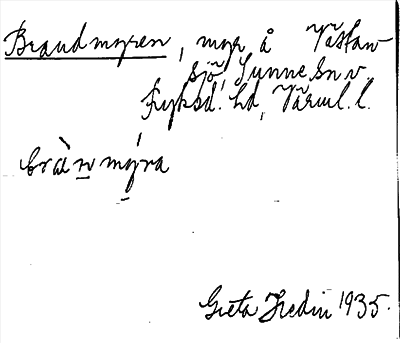 Brandmyren, myr å Västan-
sjö, Sunne sn v.
Fryksd. hd, Värml. l.
bràn mýra
Greta Hedin 1935.